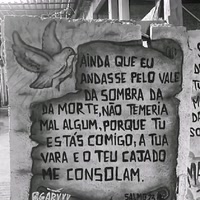 AINDA QUE EU
ANDASSE PELO VALE
DA SOMBRA DA
DA MORTE, NÃO TEMERIA
MAL ALGUM, PORQUE TU
ESTÁS COMIGO, A TUA
VARA E O TEU CAJADO
ME CONSOLAM.
SALMO 23